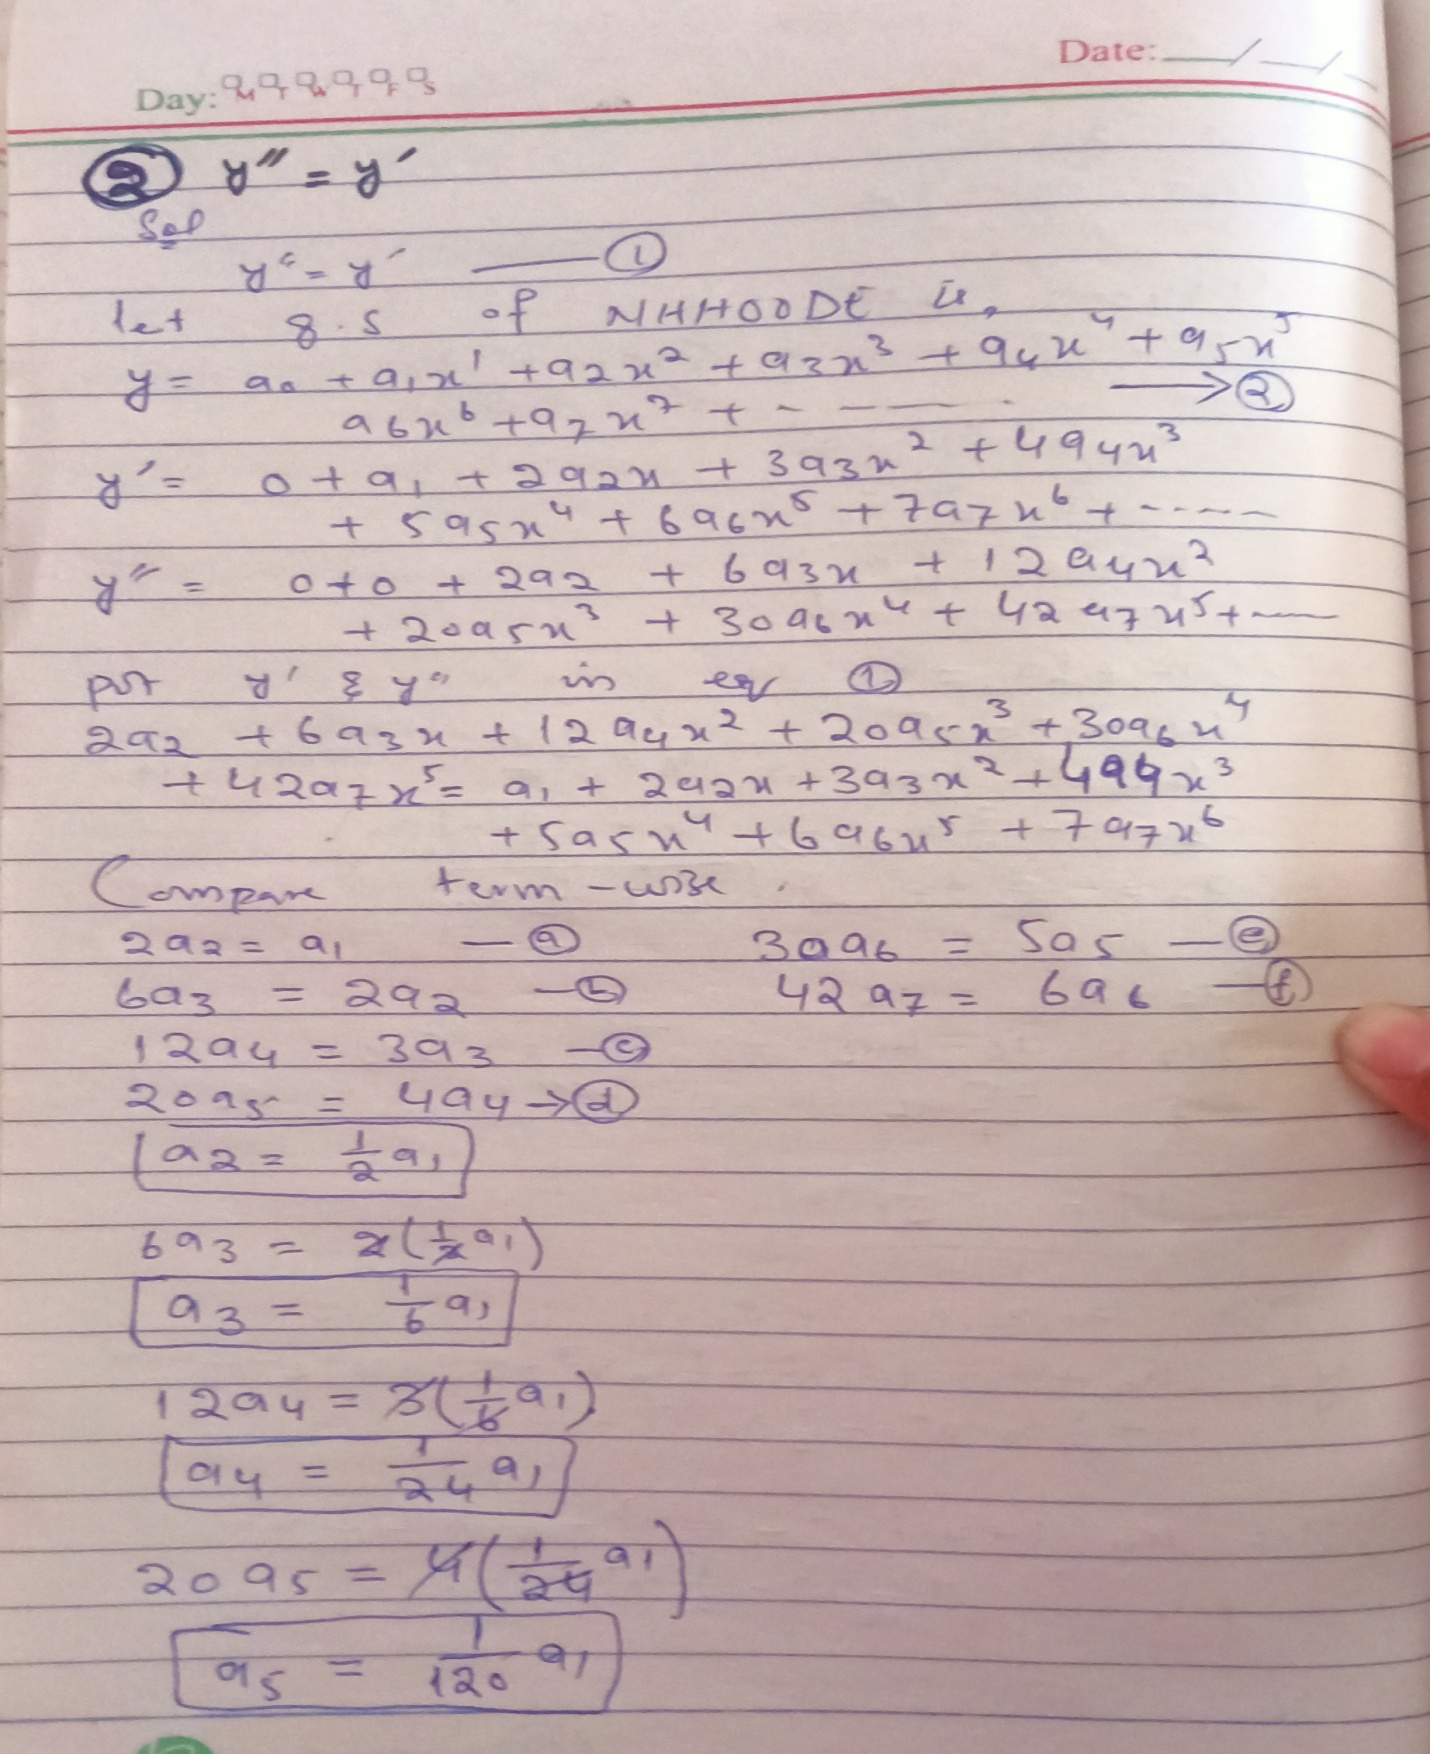 Day: M T W T F S
Date: __/__/__
② y'' = y'
Sol
y'' = y' —— ①
let g.s of NHHOODE is,
y = a₀ + a₁x¹ + a₂x² + a₃x³ + a₄x⁴ + a₅x⁵
a₆x⁶ + a₇x⁷ + - - - - . → ②
y' = 0 + a₁ + 2a₂x + 3a₃x² + 4a₄x³
+ 5a₅x⁴ + 6a₆x⁵ + 7a₇x⁶ + -----
y'' = 0+0 + 2a₂ + 6a₃x + 12a₄x²
+ 20a₅x³ + 30a₆x⁴ + 42a₇x⁵ + ----
put y' & y'' in eq ①
2a₂ + 6a₃x + 12a₄x² + 20a₅x³ + 30a₆x⁴
+ 42a₇x⁵ = a₁ + 2a₂x + 3a₃x² + 4a₄x³
+ 5a₅x⁴ + 6a₆x⁵ + 7a₇x⁶
Compare term-wise.
2a₂ = a₁ — ⓐ
6a₃ = 2a₂ — ⓑ
12a₄ = 3a₃ — ⓒ
20a₅ = 4a₄ → ⓓ
30a₆ = 5a₅ — ⓔ
42a₇ = 6a₆ — ⓕ
a₂ = 1/2 a₁
6a₃ = 2(1/2 a₁)
a₃ = 1/6 a₁
12a₄ = 3(1/6 a₁)
a₄ = 1/24 a₁
20a₅ = 4(1/24 a₁)
a₅ = 1/120 a₁